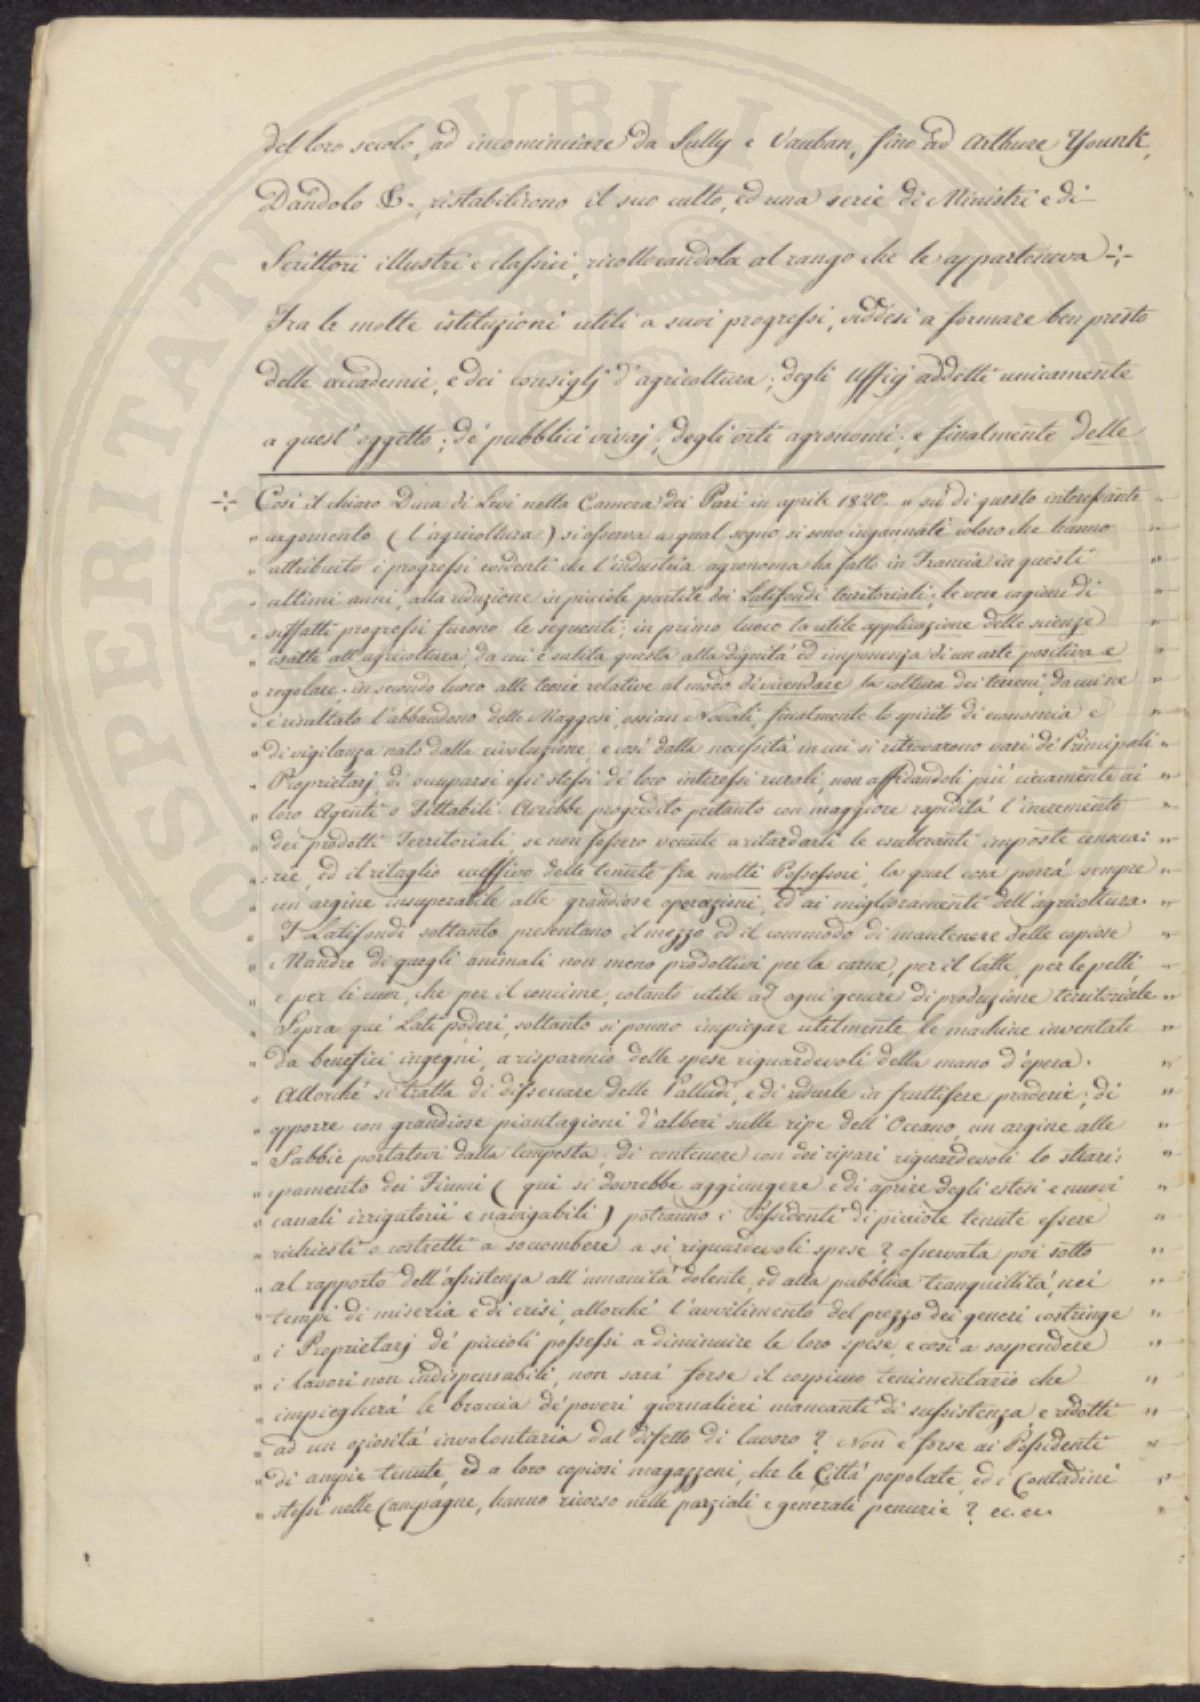 del loro secolo, ad incominciare da Sully e Vauban, fino ad Arthure Younk,
Dandolo &. ristabilirono il suo culto, ed una serie di Ministri e di
Scrittori illustri e classici, ricollocandola al rango che le apparteneva ÷
Fra le molte istituzioni utili a suoi progressi, viddesi a formare ben presto
delle accademie, e dei consiglj d'agricoltura; degli Ufficj addetti unicamente
a quest'oggetto; de' pubblici vivaj; degli orti agronomi; e finalmente delle
÷ Così il chiaro Duca di Levi nella Camera dei Pari in aprile 1820. „ su di questo interessante „
„ argomento (l'agricoltura) si osserva a qual segno si sono ingannati coloro che hanno „
„ attribuito i progressi evidenti che l'industria agronoma ha fatto in Francia in questi „
„ ultimi anni, alla riduzione in picciole partite dei Latifondi territoriali; le vere cagioni di „
„ siffatti progressi furono le seguenti; in primo luoco la utile applicazione delle scienze „
„ esatte all'agricoltura, da cui è salita questa alla dignità ed imponenza di un arte positiva e „
„ regolare. in secondo luoco alle teorie relative al modo di vicendare la coltura dei terreni, da cui ne „
„ è risultato l'abbandono delle Maggesi, ossian Novali, finalmente lo spirito di economia e „
„ di vigilanza nato dalla rivoluzione; e così dalla necessità in cui si ritrovarono varj de' Principali „
„ Proprietarj di occuparsi essi stessi de' loro interessi rurali, non affidandoli più ciecamente ai „
„ loro Agenti o Fittabili. Avrebbe progredito pertanto con maggiore rapidità l'incremento „
„ dei prodotti Territoriali, se non fossero venute a ritardarli le esuberanti imposte censua: „
„ :rie, ed il ritaglio eccessivo delle tenute fra molti Possessori, la qual cosa porrà sempre „
„ un'argine insuperabile alle grandiose operazioni, ed ai miglioramenti dell'agricoltura. „
„ I Latifondi soltanto presentano il mezzo ed il commodo di mantenere delle copiose „
„ Mandre di quegli animali non meno produttivi per la carne, per il latte, per le pelli, „
„ e per li cuoi, che per il concime, cotanto utile ad ogni genere di produzione territoriale. „
„ Sopra que' Lati poderi, soltanto si ponno impiegar utilmente le machine inventate „
„ da benefici ingegni, a risparmio delle spese riguardevoli della mano d'opera. „
„ Allorché si tratta di disseccare delle Palludi, e di ridurle in fruttifere praderie; di „
„ opporre con grandiose piantagioni d'alberi sulle ripe dell'Oceano, un argine alle „
„ Sabbie portatevi dalla tempesta; di contenere con dei ripari riguardevoli lo strari: „
„ :pamento dei Fiumi (qui si dovrebbe aggiungere e di aprire degli estesi e nuovi „
„ canali irrigatorii e navigabili) potranno i Possidenti di picciole tenute essere „
„ richiesti o costretti a soccombere a si riguardevoli spese? osservata poi sotto „
„ al rapporto dell'assistenza all'umanità dolente, ed alla pubblica tranquillità, nei „
„ tempi di miseria e di crisi, allorché l'avvilimento del prezzo dei generi costringe „
„ i Proprietarj de' piccioli possessi a diminuire le loro spese, e così a sospendere „
„ i lavori non indispensabili, non sarà forse il cospicuo tenimentario che „
„ impiegherà le braccia de' poveri giornalieri mancanti di sussistenza, e ridotti „
„ ad un oziosità involontaria dal difetto di lavoro? Non è forse ai Possidenti „
„ di ampie tenute, ed a loro copiosi magazzeni, che le Città popolate, ed i Contadini „
„ stessi nelle Campagne, hanno ricorso nelle parziali e generali penurie? ec. ec. „